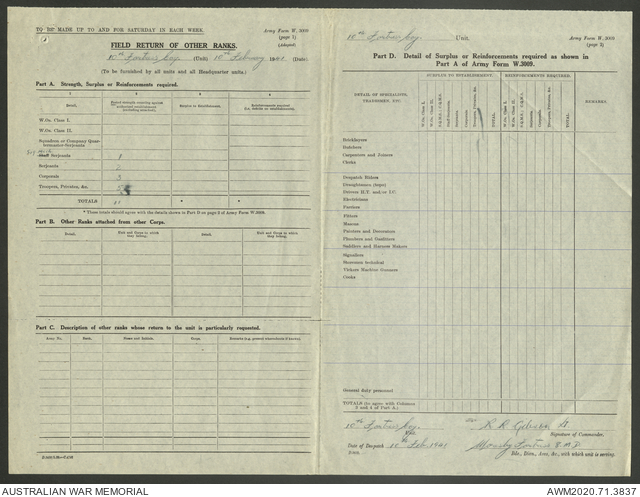 TO BE MADE UP TO AND FOR SATURDAY IN EACH WEEK.
Army Form W. 3009
(page 1)
(Adapted)
FIELD RETURN OF OTHER RANKS.
10th Fortress Coy. (Unit) 10th February 1941 (Date)
(To be furnished by all units and all Headquarter units.)
Part A. Strength, Surplus or Reinforcements required.
1 2 3 4
Detail.
Surplus to Establishment.
Reinforcements required
W.Os. Class I.
W.Os. Class II.
Squadron or Company Quar-
termaster-Serjeants
Staff Serjeants 1
Serjeants 2
Corporals 3
Troopers, Privates, &c. 5
TOTALS 11 * *
* These totals should agree with the details shown in Part D on page 2 of Army Form W.3009.
Part B. Other Ranks attached from other Corps.
Detail.
Unit and Corps to which they belong.
Detail.
Unit and Corps to which they belong.
Part C. Description of other ranks whose return to the unit is particularly requested.
Army No.
Rank.
Name and Initials.
Cause.
10th Fortress Coy. Unit.
Army Form W. 3009
(page 2)
Part D. Detail of Surplus or Reinforcements required as shown in
Part A of Army Form W.3009.
DETAIL OF SPECIALISTS,
TRADESMEN, ETC.
SURPLUS TO ESTABLISHMENT.
REINFORCEMENTS REQUIRED.
W.Os. Class I.
W.Os. Class II.
Staff Serjeants.
Serjeants.
Corporals.
Troopers, Privates, &c.
TOTAL.
W.Os. Class I.
W.Os. Class II.
Staff Serjeants.
Serjeants.
Corporals.
Troopers, Privates, &c.
TOTAL.
REMARKS.
Bricklayers
Butchers
Carpenters and Joiners
Clerks
Despatch Riders
Draughtsmen (topo)
Drivers H.T. and/or I.C.
Electricians
Farriers
Fitters
Masons
Painters and Decorators
Plumbers and Gasfitters
Saddlers and Harness Makers
Signallers
Storemen technical
Vickers Machine Gunners
Cooks
General duty personnel
TOTALS (to agree with Columns
3 and 4 of Part A.)
10th Fortress Coy.
Signature of Commander.
Date of Despatch 10th Feb 1941
Bde., Divn., Area, &c., with which unit is serving.
AUSTRALIAN WAR MEMORIAL
AWM2020.71.3837